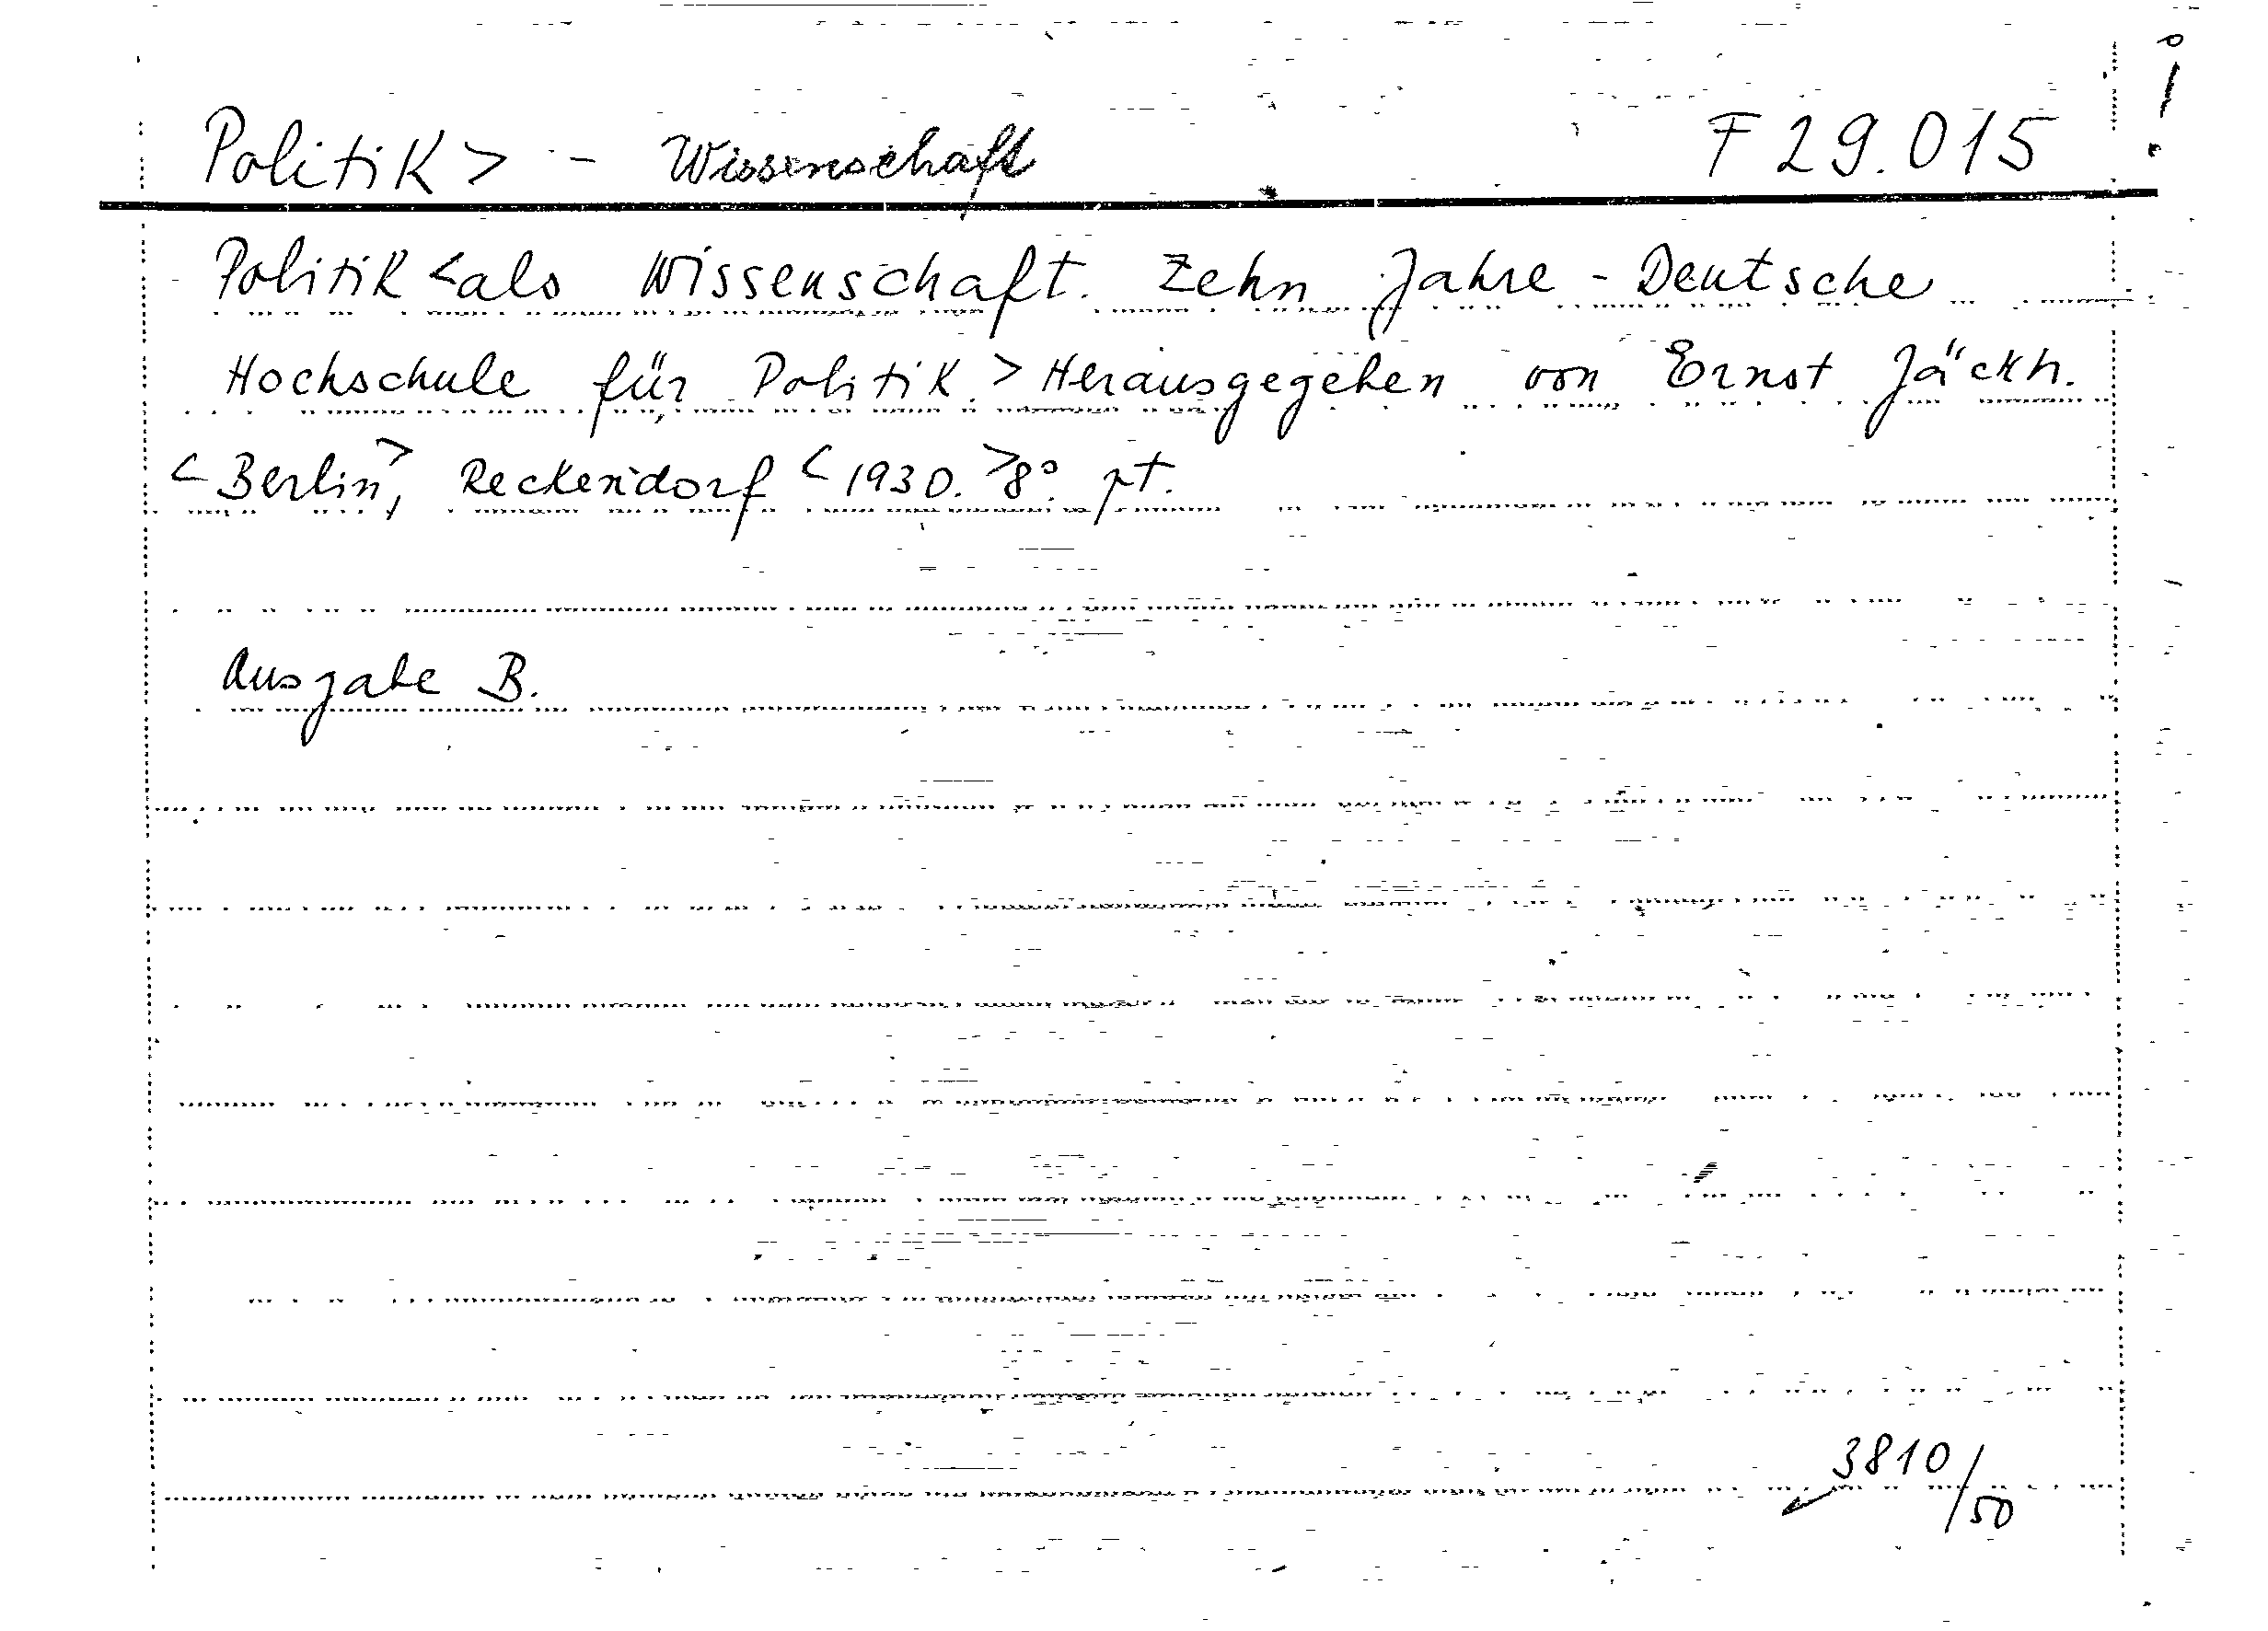 Politik > - Wissenschaft F 29.015
Politik < als Wissenschaft. Zehn Jahre - Deutsche
Hochschule für Politik. > Herausgegeben von Ernst Jäckh.
< Berlin >, Reckendorf < 1930. > 8°. pt.
Ausgabe B.
3810/50